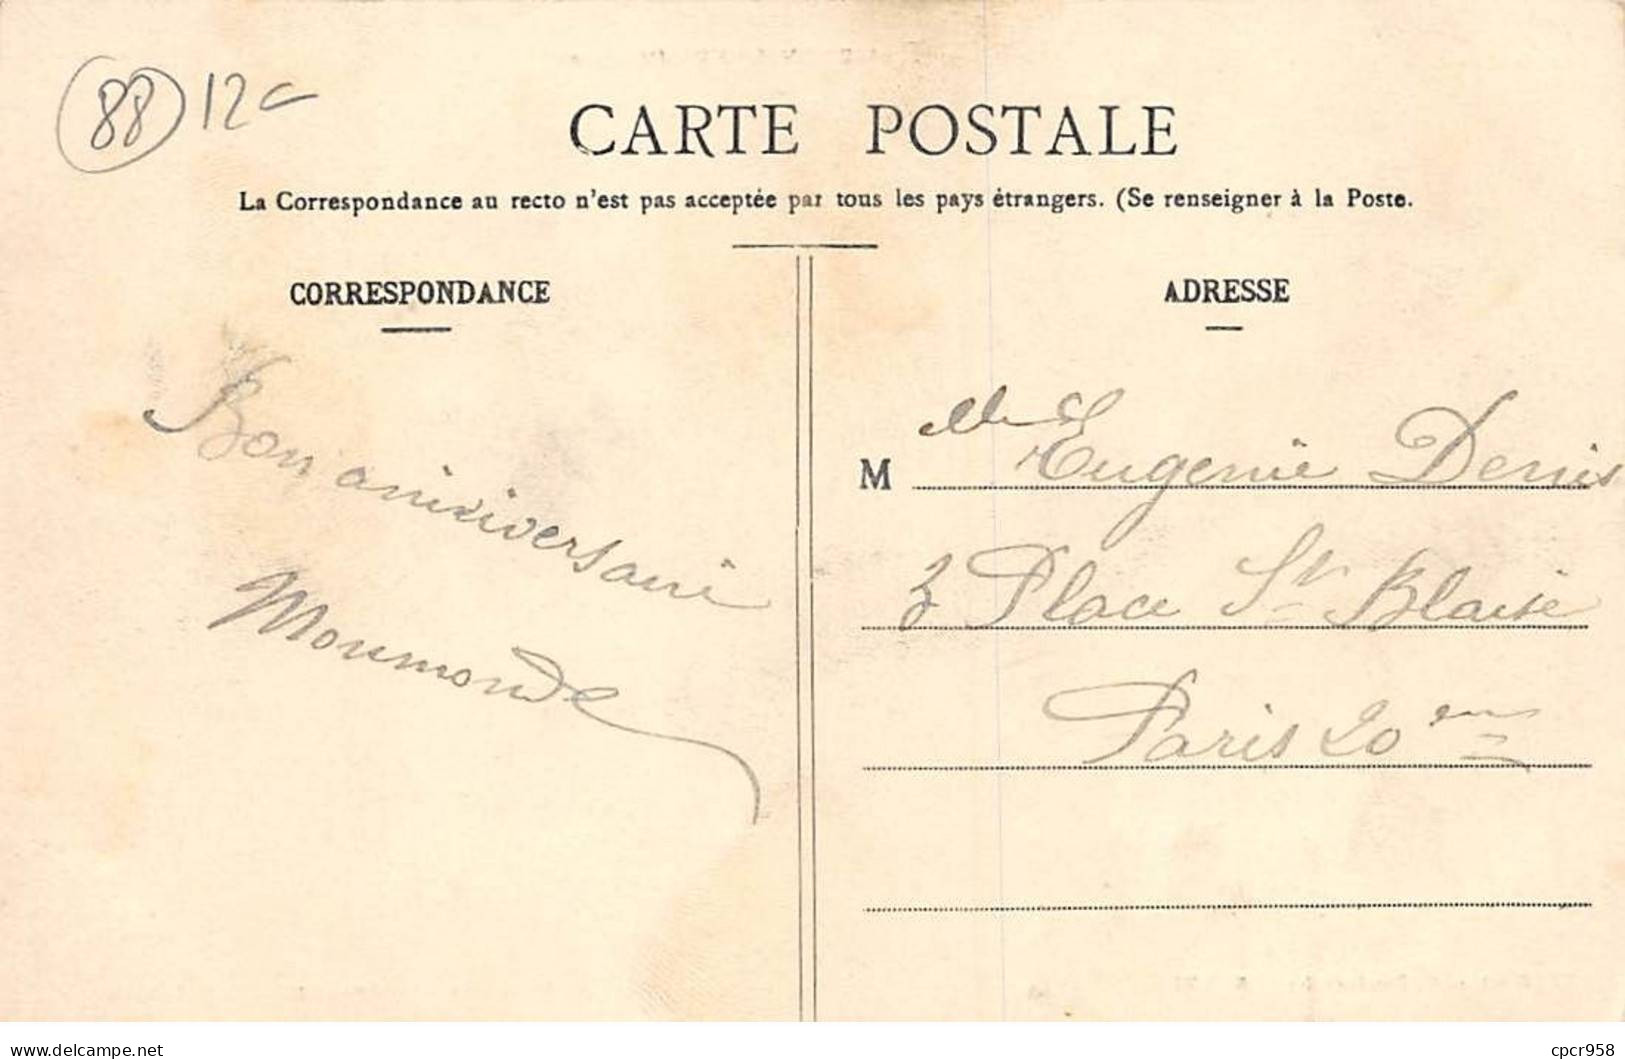 88 12
CARTE POSTALE
La Correspondance au recto n'est pas acceptée par tous les pays étrangers. (Se renseigner à la Poste.
CORRESPONDANCE
Bon aniviversaire
ADRESSE
M elle Eugenie Denis
3 Place St Blaise
Paris 20 em
delcampe.net
cpcr958